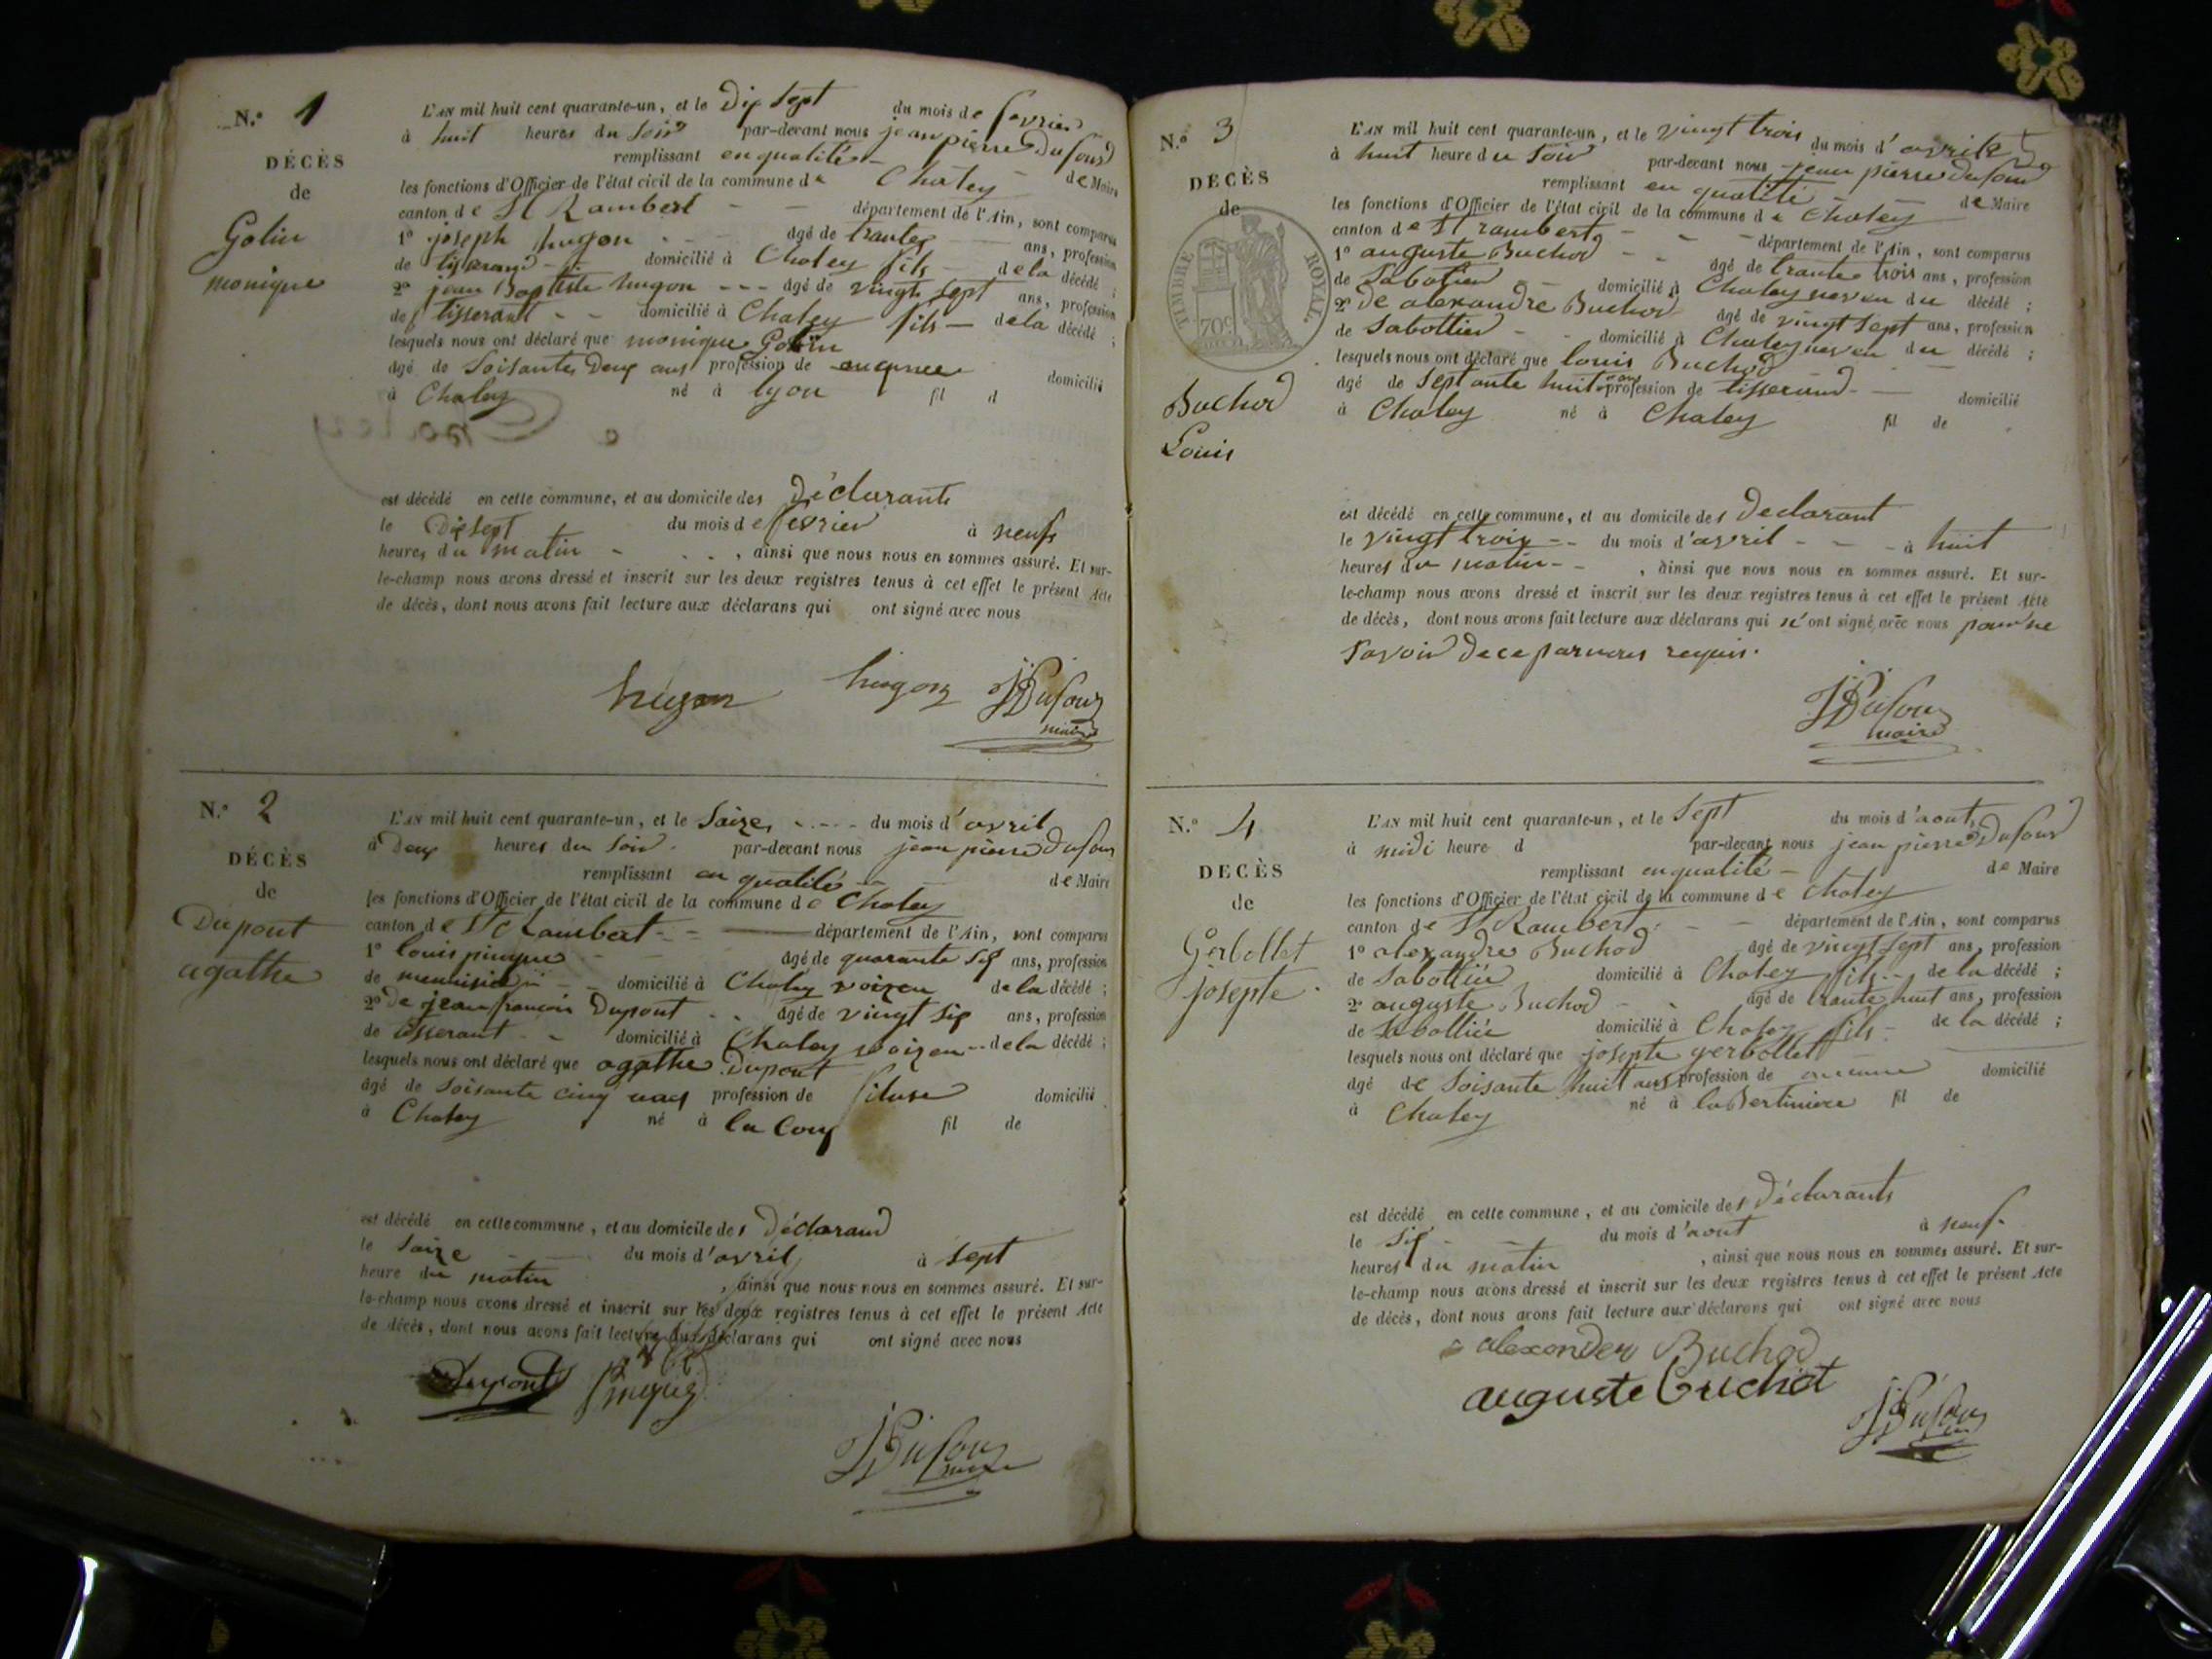 N.° 1
DÉCÈS
de
Golin
monique
L'AN mil huit cent quarante-un, et le Dix sept du mois de fevrier
à huit heures du Soir par-devant nous jean pierre Dufour
remplissant en qualité de Maire
les fonctions d'Officier de l'état civil de la commune de Chaley
canton de St Rambert département de l'Ain, sont comparus
1° joseph hugon âgé de trante ans, profession
de tisserand domicilié à Chaley fils de la décédé ;
2° jean Baptiste hugon âgé de vingt sept ans, profession
de tisserant domicilié à Chaley fils de la décédé ;
lesquels nous ont déclaré que monique Golin
âgé de Soisante Deux ans profession de domicilié
à Chaley né à lyon fil d
est décédé en cette commune, et au domicile des Déclarants
le Dix sept du mois de fevrier à neufs
heures du matin , ainsi que nous nous en sommes assuré. Et sur-
le-champ nous avons dressé et inscrit sur les deux registres tenus à cet effet le présent Acte
de décès, dont nous avons fait lecture aux déclarans qui ont signé avec nous
hugon hugon JPDufour
maire
N.° 2
DÉCÈS
de
Dupont
agathe
L'AN mil huit cent quarante-un, et le Saize du mois d'avril
à Deux heures du Soir par-devant nous jean pierre Dufour
remplissant en qualité de Maire
les fonctions d'Officier de l'état civil de la commune de Chaley
canton de St Rambert département de l'Ain, sont comparus
1° louis âgé de quarante six ans, profession
de domicilié à Chaley voizen de la décédé ;
2° de jean francois Dupont âgé de vingt six ans, profession
de tisserant domicilié à Chaley voizen de la décédé ;
lesquels nous ont déclaré que agathe Dupont
âgé de Soisante cinq profession de filuse domicilié
à Chaley né à la Coux fil de
est décédé en cette commune, et au domicile des Déclarand
le Saize du mois d'avril à Sept
heure du matin , ainsi que nous nous en sommes assuré. Et sur-
le-champ nous avons dressé et inscrit sur les deux registres tenus à cet effet le présent Acte
de décès, dont nous avons fait lecture aux déclarans qui ont signé avec nous
Dupont
JPDufour
maire
N.° 3
DÉCÈS
de
TIMBRE ROYAL.
70c
Buchod
Louis
L'AN mil huit cent quarante-un, et le vingt trois du mois d'avril
à huit heure du Soir par-devant nous jean pierre Dufour
remplissant en qualité de Maire
les fonctions d'Officier de l'état civil de la commune de Chaley
canton de St rambert département de l'Ain, sont comparus
1° auguste Buchod âgé de trante trois ans, profession
de Sabotier domicilié à Chaley neveu du décédé ;
2° de alexandre Buchod âgé de vingt Sept ans, profession
de Sabottier domicilié à Chaley neveu du décédé ;
lesquels nous ont déclaré que louis Buchod
âgé de Septante huit ans profession de tisserand domicilié
à Chaley né à Chaley fil de
est décédé en cette commune, et au domicile des Declarant
le vingt troix du mois d'avril à huit
heures du matin , ainsi que nous nous en sommes assuré. Et sur-
le-champ nous avons dressé et inscrit sur les deux registres tenus à cet effet le présent Acte
de décès, dont nous avons fait lecture aux déclarans qui n'ont signé avec nous pour ne
savoir de ce par nous requis.
JPDufour
maire
N.° 4
DÉCÈS
de
Gerbollet
josepte
L'AN mil huit cent quarante-un, et le Sept du mois d'aout
à midi heure d par-devant nous jean pierre Dufour
remplissant en qualité de Maire
les fonctions d'Officier de l'état civil de la commune de Chaley
canton de St Rambert département de l'Ain, sont comparus
1° alexandre Buchod âgé de vingt Sept ans, profession
de Sabottier domicilié à Chaley fils de la décédé ;
2° auguste Buchod âgé de trante huit ans, profession
de Sabottier domicilié à Chaley fils de la décédé ;
lesquels nous ont déclaré que josepte gerbollet
âgé de Soisante huit ans profession de aucune domicilié
à Chaley né à la Bertiniere fil de
est décédé en cette commune, et au domicile des Déclarants
le Six du mois d'aout à neuf
heures du matin , ainsi que nous nous en sommes assuré. Et sur-
le-champ nous avons dressé et inscrit sur les deux registres tenus à cet effet le présent Acte
de décès, dont nous avons fait lecture aux déclarans qui ont signé avec nous
alexander Buchod
auguste Buchot
JPDufour